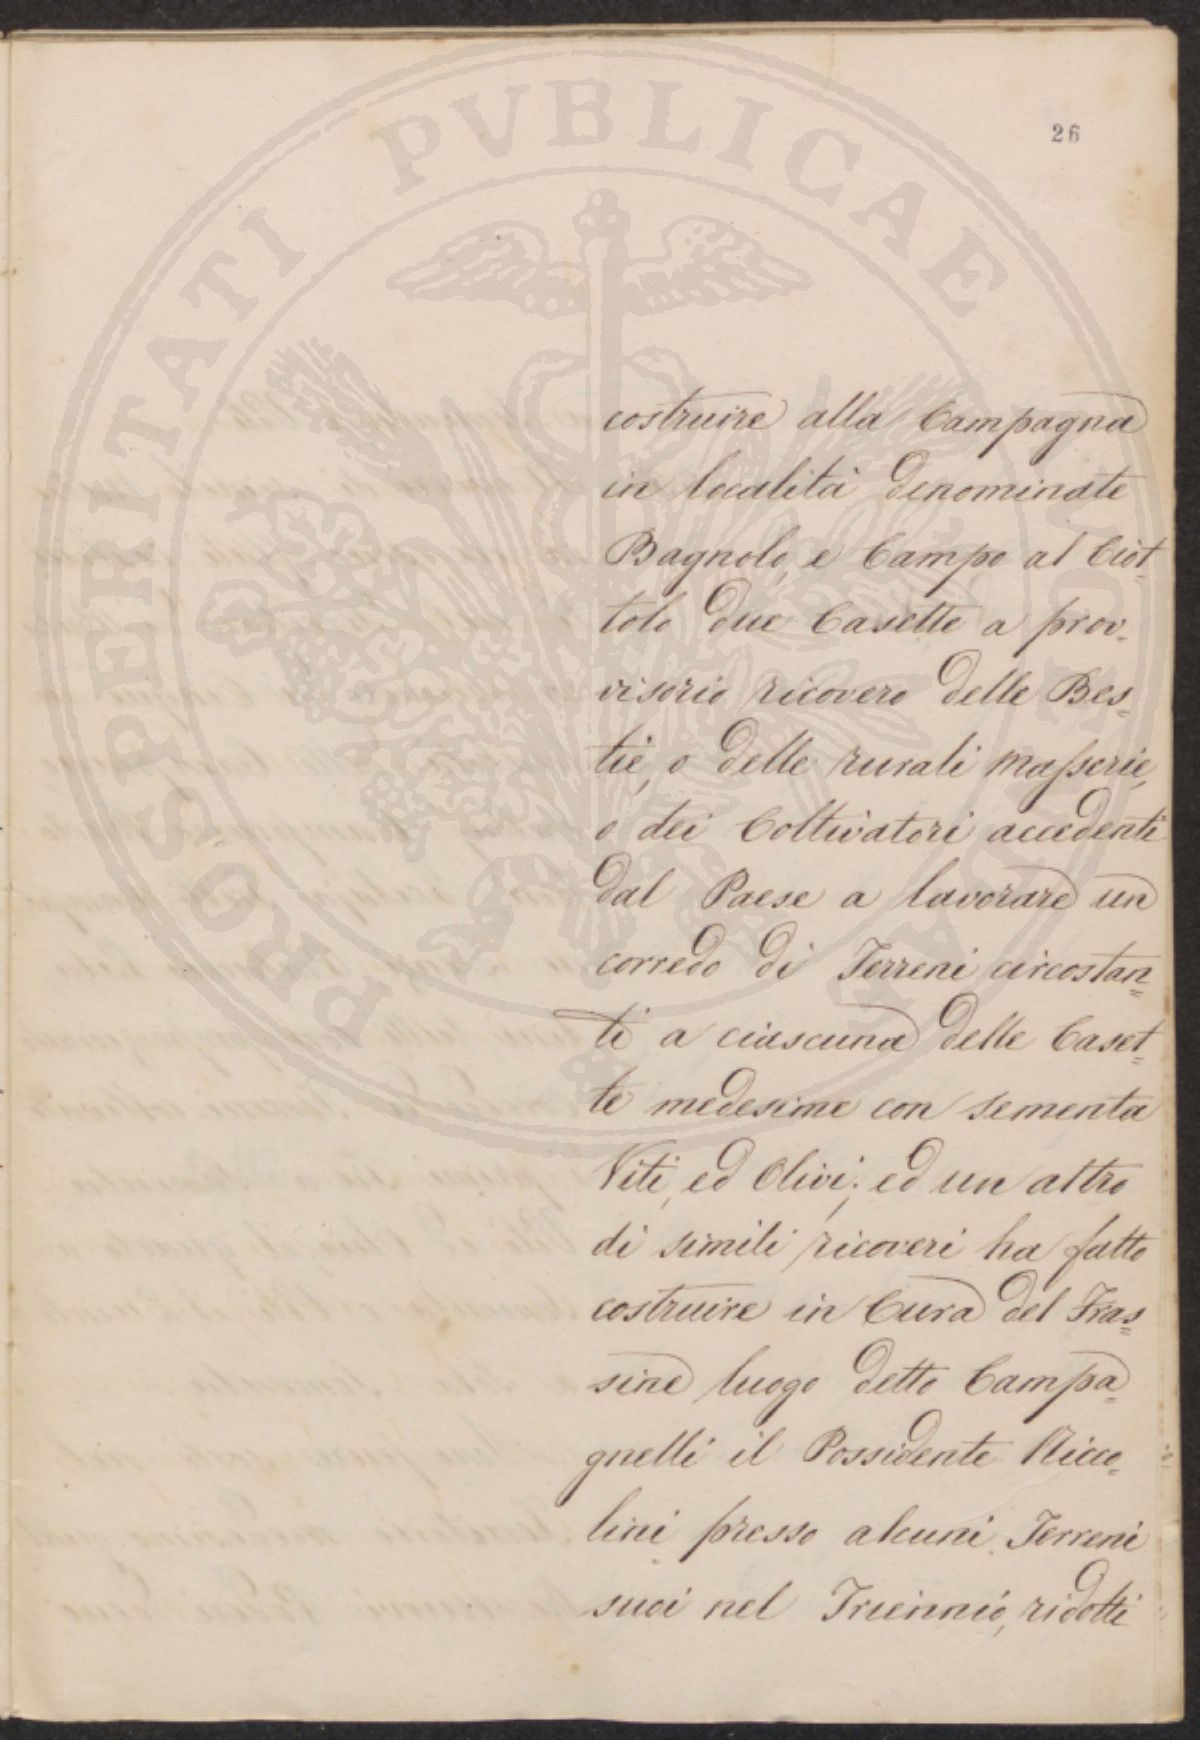 PROSPERITATI PVBLICAE
26
costruire alla Campagna
in località denominate
Bagnolo, e Campo al Ciot=
tolo due Casette a prov=
visorio ricovero delle Bes=
tie, o delle rurali Masserie,
o dei Coltivatori accedenti
dal Paese a lavorare un
corredo di Terreni circostan=
ti a ciascuna delle Caset=
te medesime con sementa
Viti, ed Olivi; ed un altro
di simili ricoveri ha fatto
costruire in Cura del Fras=
sine luogo detto Campa=
gnelli il Possidente Ricco=
lini presso alcuni Terreni
suoi nel Triennio, ridotti